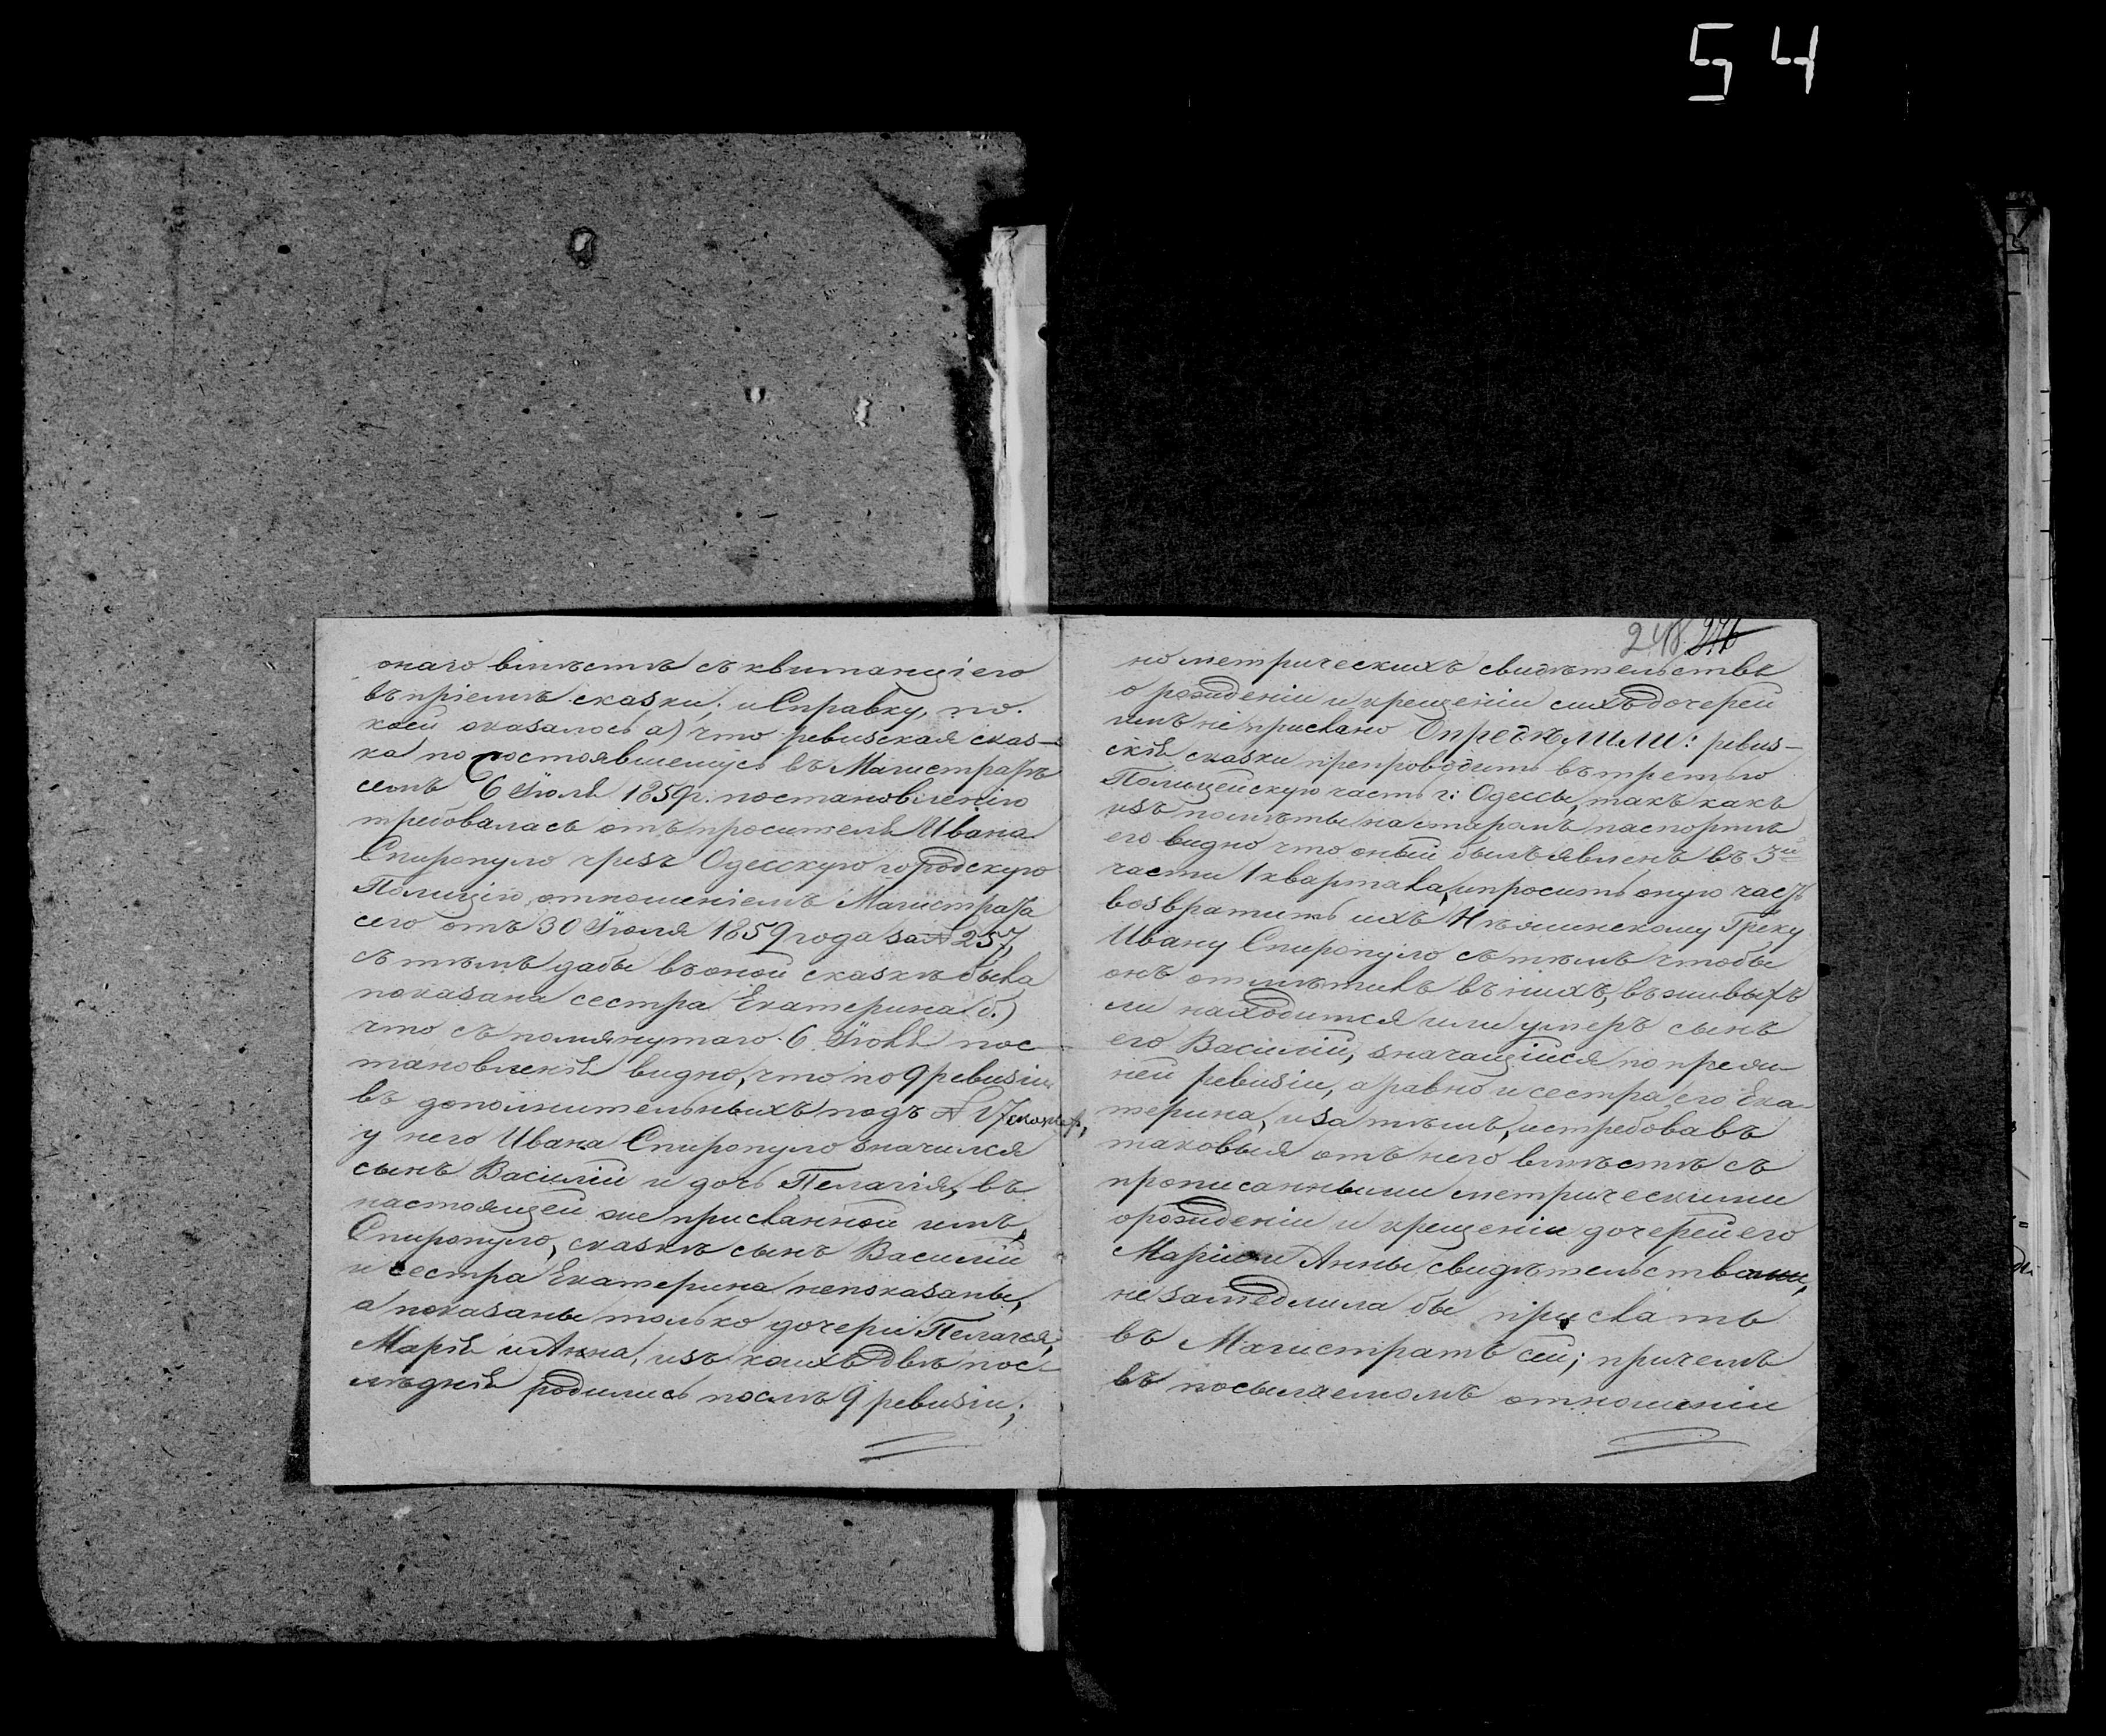 54
онаго вмѣстѣ съ квитанціею
въ пріемѣ сказки; и Справку, по.
коей оказалось а) что ревизская сказ-
ка по состоявшемуся въ Магистратѣ
семъ 6 Іюля 1859 г. постановленію
требовалась отъ просителя Ивана
Спиропуло чрезъ Одесскую городскую
Полицію, отношеніемъ Магистрата
сего отъ 30 Іюля 1859 года за № 257,
съ тѣмъ дабы въ оной сказкѣ была
показана сестра Екатерина б.)
что съ помянутаго 6 Іюля пос-
тановленія видно, что по 9 ревизіи
въ дополнительныхъ подъ № 17
у него Ивана Спиропуло значился
сынъ Василій и дочь Пелагія, въ
настоящей же присланной имъ,
Спиропуло, сказкѣ сынъ Василій
и сестра Екатерина непоказаны,
а показаны только дочери Пелагея,
Марія и Анна, изъ коихъ двѣ пос-
лѣднія родились послѣ 9 ревизіи;
248 276
но метрическихъ свидѣтельствъ
о рожденіи и крещеніи сихъ дочерей
имъ не прислано Опредѣлили: ревиз-
скія сказки препроводить въ третью
Полицейскую часть г: Одессы, такъ какъ
изъ помѣты на старомъ паспортѣ
его видно что оный былъ явленъ въ 3й
части 1 квартала, и просить оную часть
возвратить ихъ Нѣжинскому Греку
Ивану Спиропуло съ тѣмъ чтобы
онъ отмѣтилъ въ нихъ, въ живыхъ
ли находится или умеръ сынъ
его Василій, значащійся по преж-
ней ревизіи, а равно и сестра его Ека-
терина, и за тѣмъ, истребовавъ
таковыя отъ него вмѣстѣ съ
прописанными метрическими
о рожденіи и крещеніи дочерей его
Маріи и Анны свидѣтельствами,
не замедлила бы прислать
въ Магистратъ сей; причемъ
въ посылаемомъ отношеніи